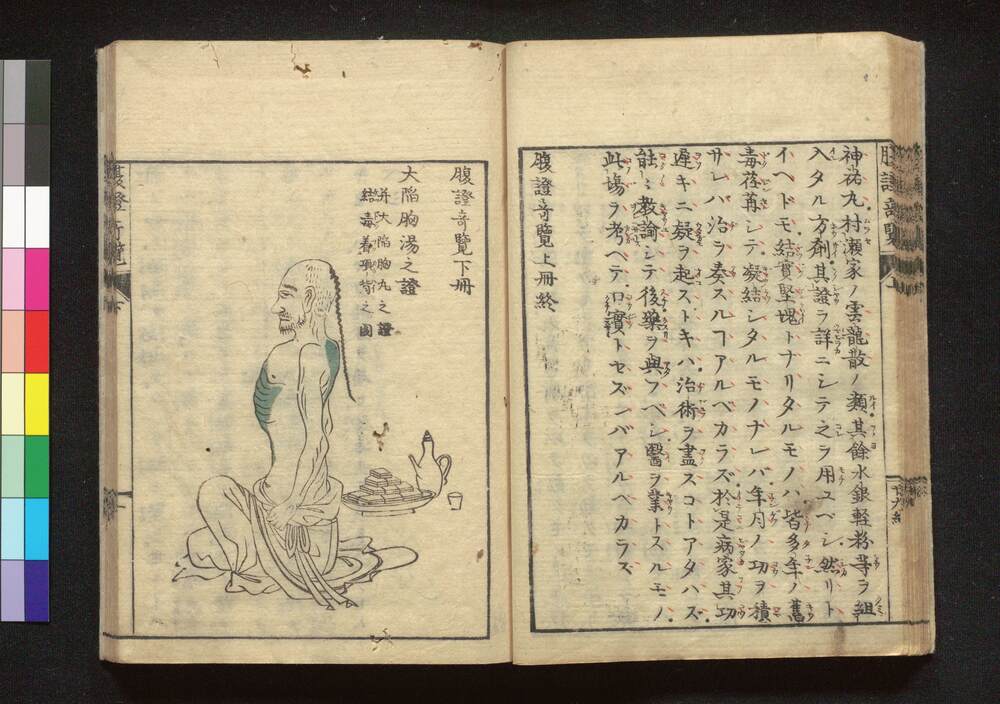 腹證奇覽
神祐丸村瀬家ノ雲龍散ノ類其餘水銀輕粉等ヲ組
入タル方劑其證ヲ詳ニシテ之ヲ用ユベシ然リト
イヘドモ結實堅塊トナリタルモノハ皆多年ノ舊
毒荏苒シテ凝結シタルモノナレバ年月ノ功ヲ積
サレハ治ヲ奏スルヿアルベカラズ於是病家其功
遅キニ疑ヲ起ストキハ治術ヲ盡スコトアタハズ
能ニ教諭シテ後藥ヲ與フベシ醫ヲ業トスルモノ
此場ヲ考ヘテ口實トセズンバアルベカラズ
腹證奇覽上冊終
腹證奇覽下冊
大陷胸湯之證
并大陷胸丸之證
結毒着乎背之圖